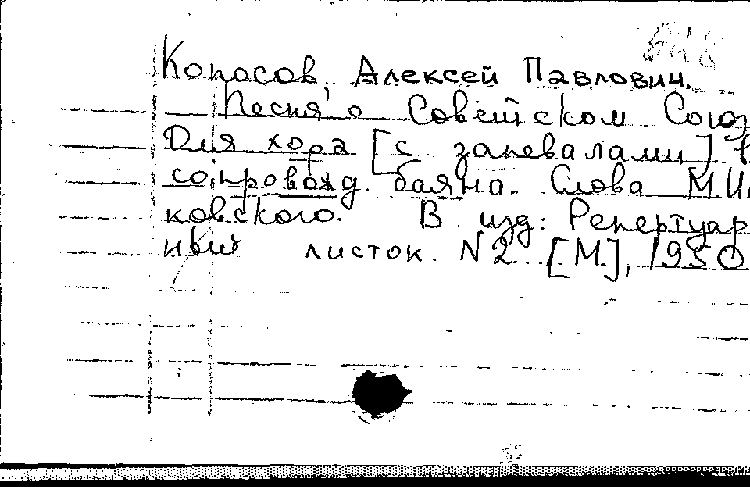 Копосов, Алексей Павлович.
Песня о Советском Союз
Для хора [с запевалами] в
сопровожд. баяна. Слова М.И.
ковского. В изд: Репертуар
ный листок. N 2 [М.], 1950